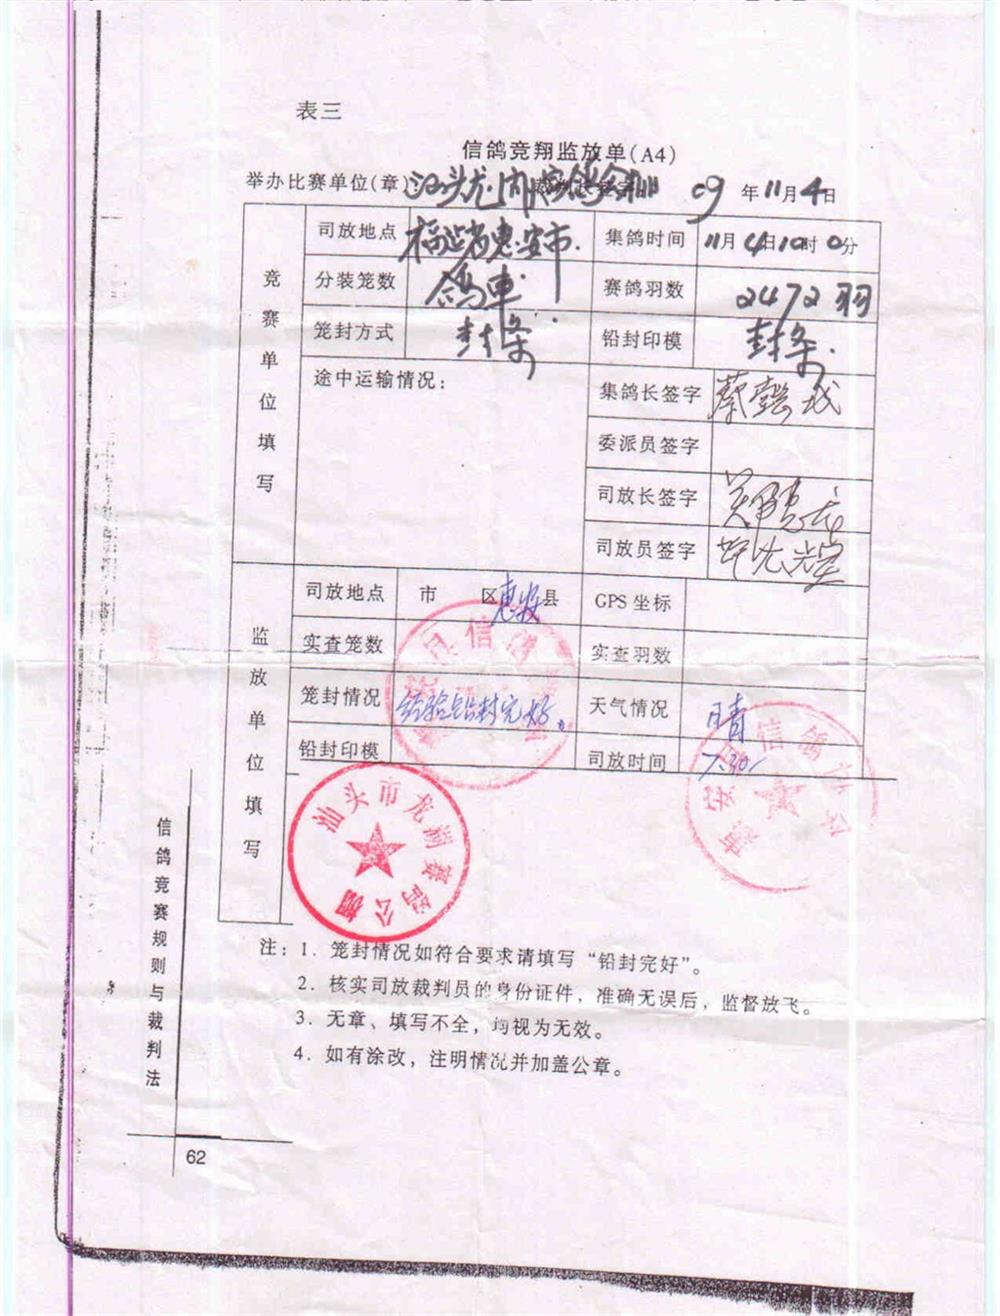 表三
信鸽竞翔监放单(A4)
举办比赛单位(章) 汕头龙湖 09 年11月4日
竞赛单位填写
司放地点 福建省惠安市. 集鸽时间 11月4日10时0分
分装笼数 鸽車 赛鸽羽数 2472羽
笼封方式 封条 铅封印模 封条.
途中运输情况: 集鸽长签字
委派员签字
司放长签字
司放员签字
监放单位填写
司放地点 市 区惠安县 GPS 坐标
实查笼数 实查羽数
笼封情况 经验铅封完好。 天气情况 晴
铅封印模 司放时间 7.30
汕头市龙湖赛鸽公棚
惠安县信鸽协会
注: 1. 笼封情况如符合要求请填写“铅封完好”。
2. 核实司放裁判员的身份证件，准确无误后，监督放飞。
3. 无章、填写不全，均视为无效。
4. 如有涂改，注明情况并加盖公章。
信鸽竞赛规则与裁判法
62